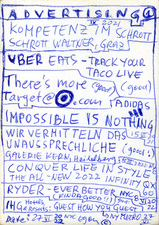 ADVERTISING
IX 2021
KOMPETENZ IM SCHROTT
SCHROTT WALTNER, GRAZ
UBER EATS - TRACK YOUR
TACO LIVE
There's more (good)
Target .com ADIDAS
IMPOSSIBLE IS NOTHING
WIR VERMITTELN DAS
UNAUSSPRECHLICHE (good!)
GALERIE KERN, Heidelberg
CONQUER LIFE IN STYLE
THE ALL-NEW 2022 INFINITY QX
RYDER - EVER BETTER
Hotels
Resorts: GUEST HOW YOU GUEST
METRO